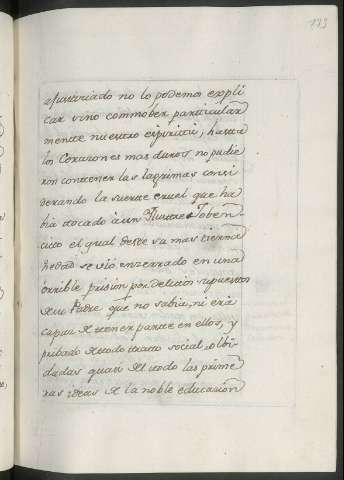 193
afortunado no lo podemos expli
car sino commober particular
mente nuestro espiritu; hasta
los Corazones mas duros no pudie
ron contener las lagrimas consi
derando la suerte cruel que ha
bia tocado à un Ylustre Joben
cito el qual desde su mas tierna
hedad se vió enzerrado en una
orrible prision por delitos supuestos
de su Padre que no sabia, ni era
capaz de tener parte en ellos, y
pribado de todo trato social, olbi
dadas quasi del todo las prime
ras ideas de la noble educacion